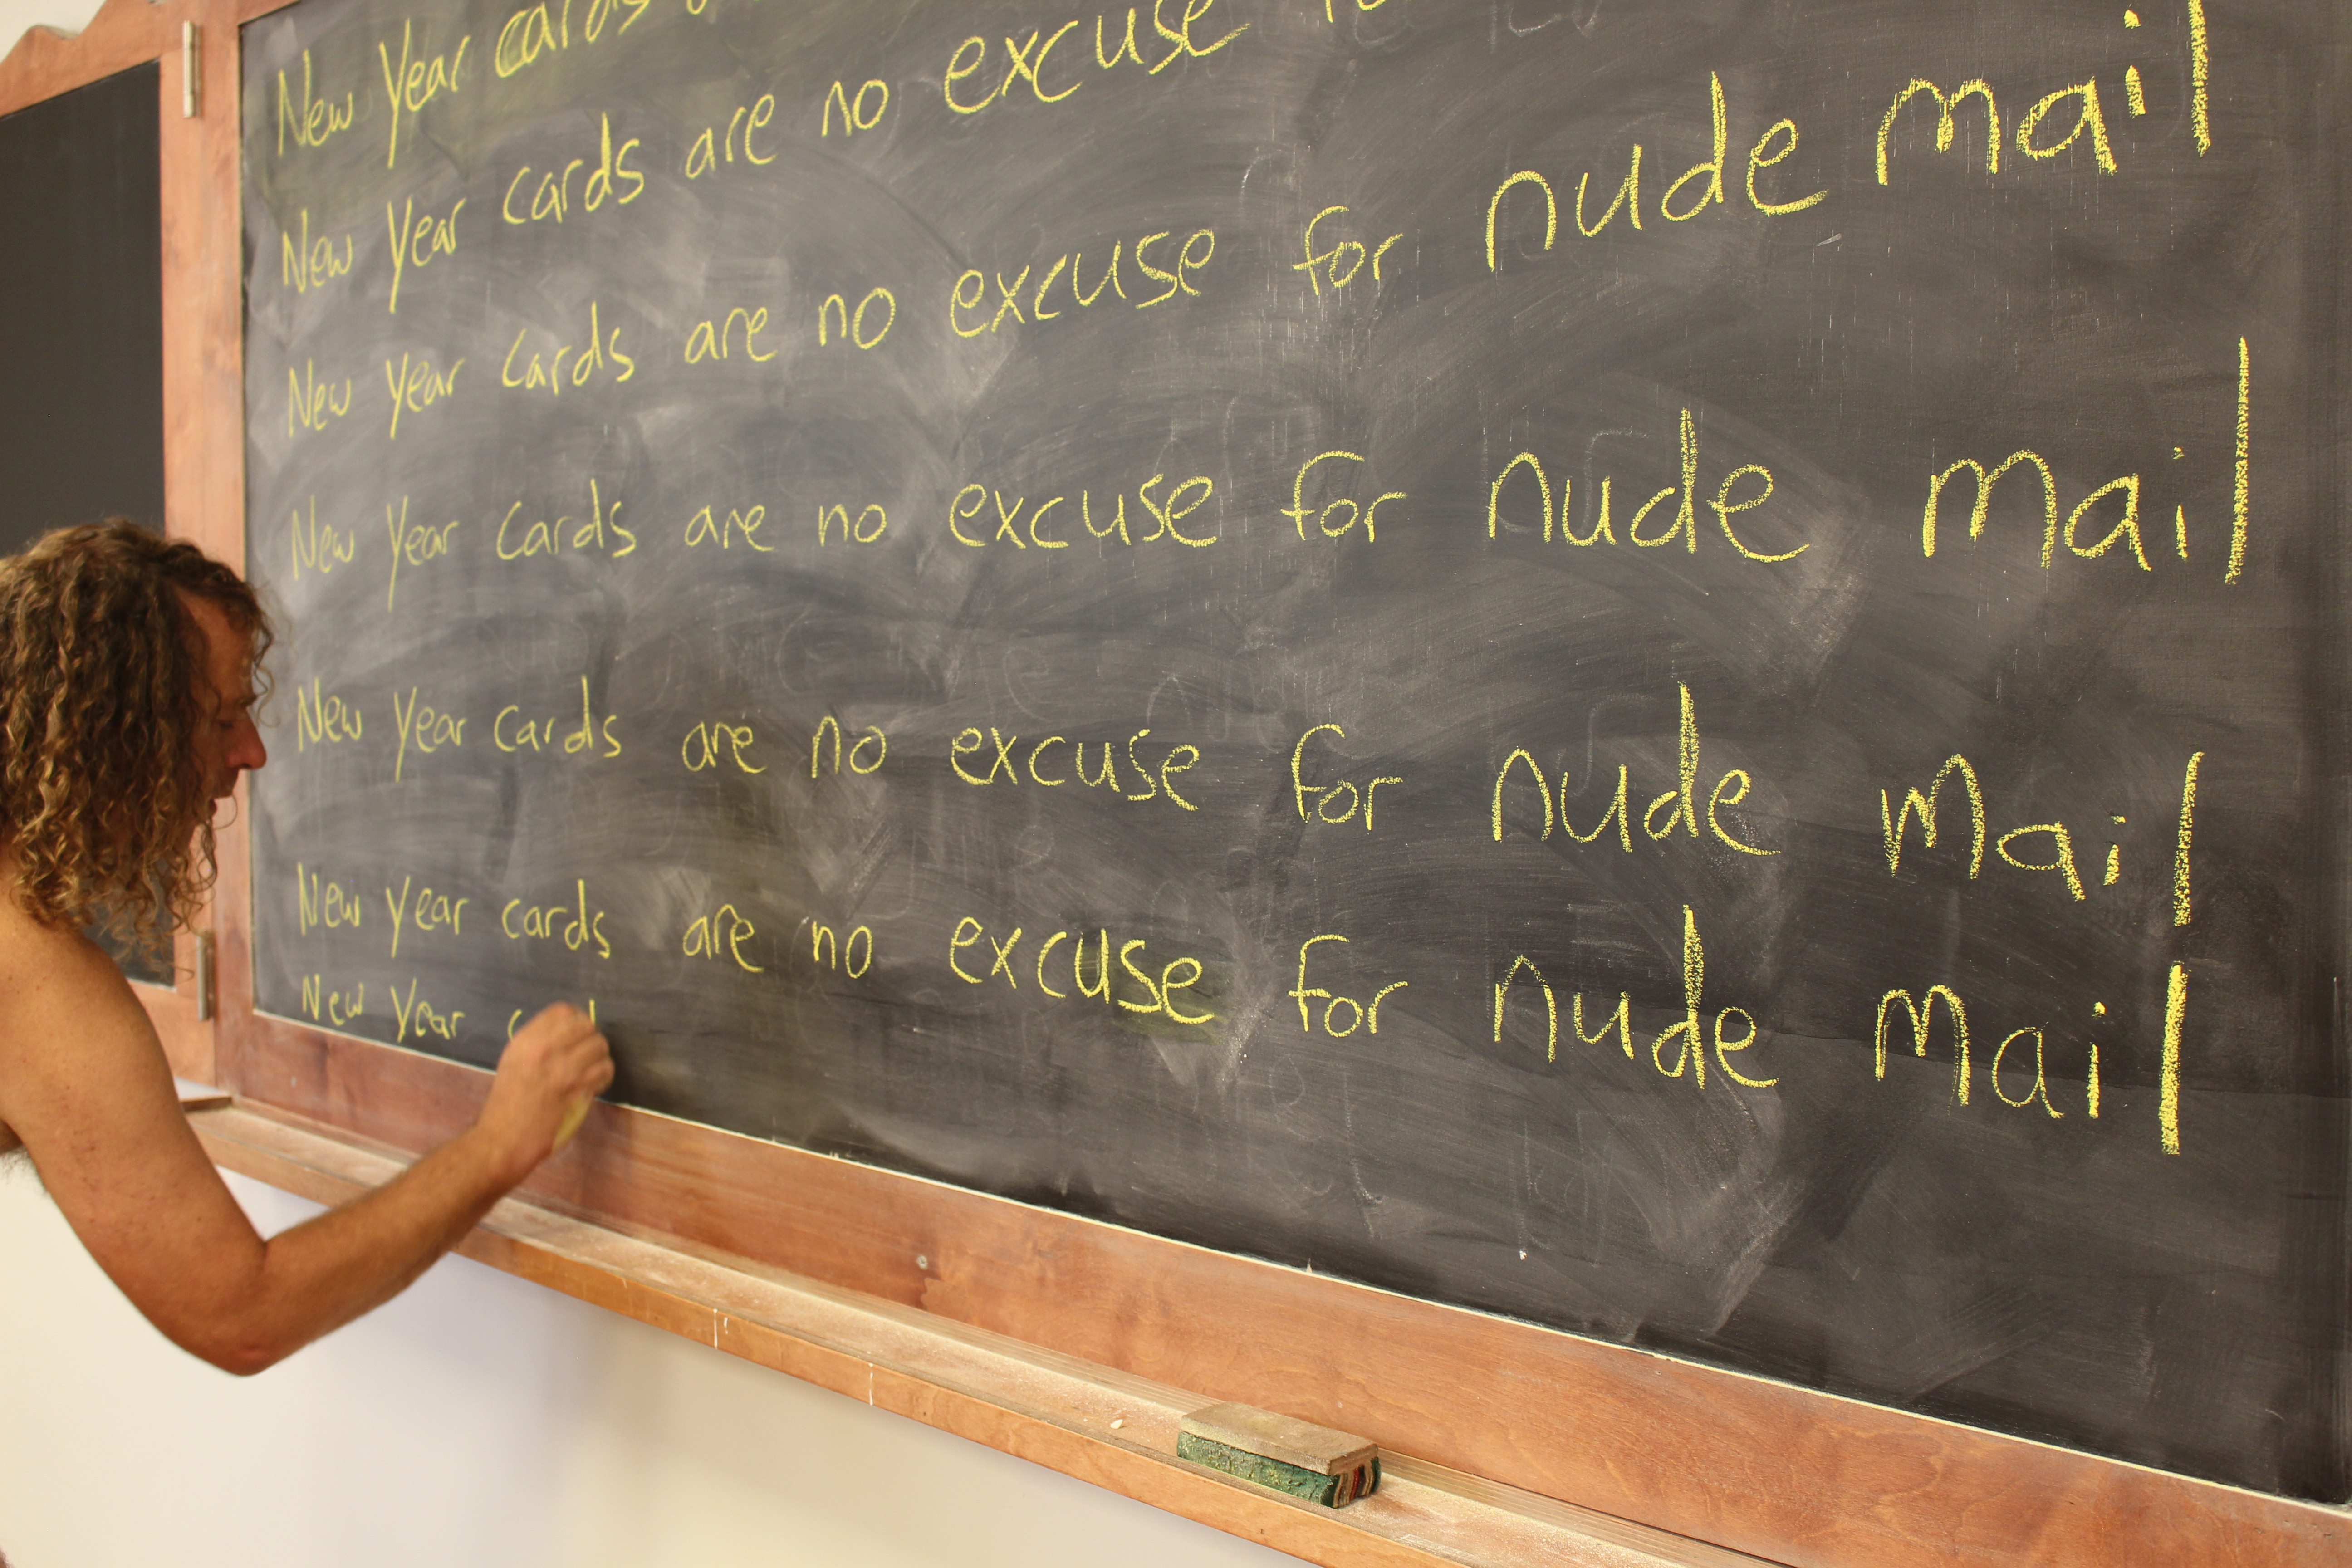 New Year cards
New Year cards are no excuse
New Year cards are no excuse for nude mail
New Year cards are no excuse for nude mail
New Year cards are no excuse for nude mail
New Year cards are no excuse for nude mail
New Year